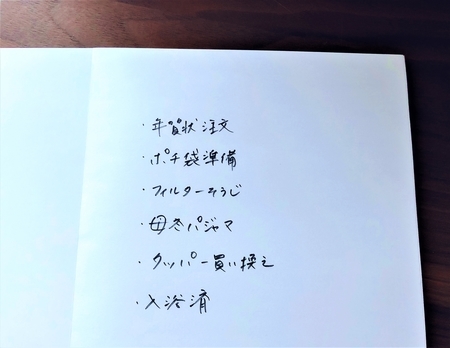 ・年賀状注文
・ポチ袋準備
・フィルターそうじ
・母冬パジャマ
・タッパー買い換え
・入浴済